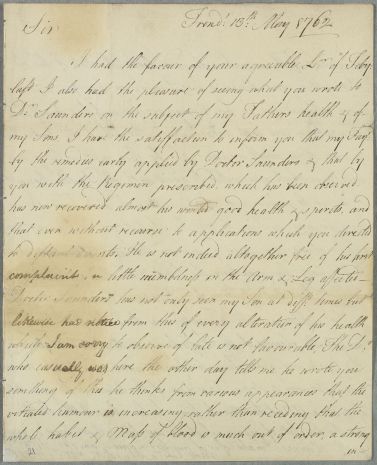 Trend. 13th May 1762
Sir
I had the favour of your agreeable Lr. of Feby
last I also had the pleasure of seeing what you wrote to
Dr. Saunders on the subject of my Fathers health & of
my Sons. I have the satisfaction to inform you that my
by the remedies early applied by Doctor Saunders & that by
you with the Regimen prescribed, which has been observed
has now recovered almost his wonted good health & spirits, and
that even without recourse to applications which you directed
He is not indeed altogether free of his first
complaint, a little numbness in the Arm & Leg affected
Doctor Saunders has not only seen my Son at difft. times but
likewise had notice from time of every alteration of his health
which I am sorry to observe of late is not favourable. The Dr.
who casually was here the other day tells me he wrote you
something of this he thinks from various appearances that the
vitiated humour is increasing rather than receding that the
whole habit & Mass of blood is much out of order, a strong
in